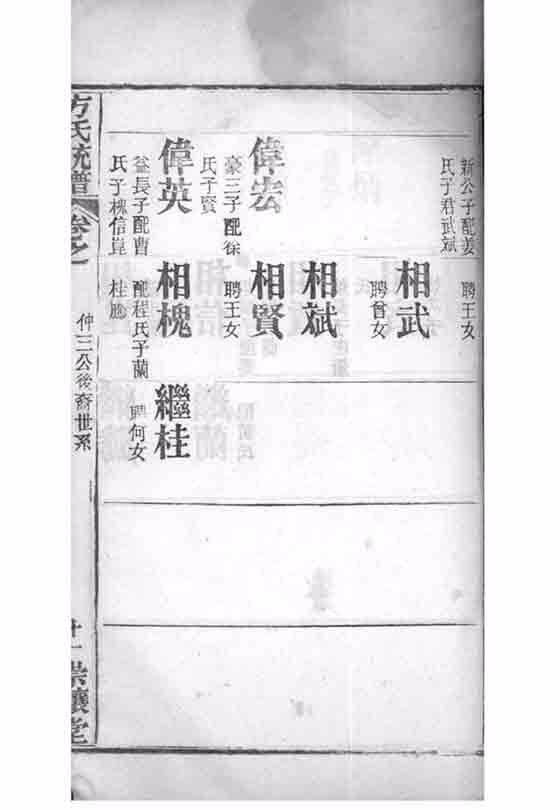 新公子配姜
氏子君武斌
偉宏
豪三子配徐
氏子賢
偉英
益長子配曹
氏子槐信崑
聘王女
相武
聘曾女
相斌
相賢
聘王女
相槐
配程氏子蘭
桂
繼桂
聘何女
方氏統譜
卷之
仲三公後裔世系
堂